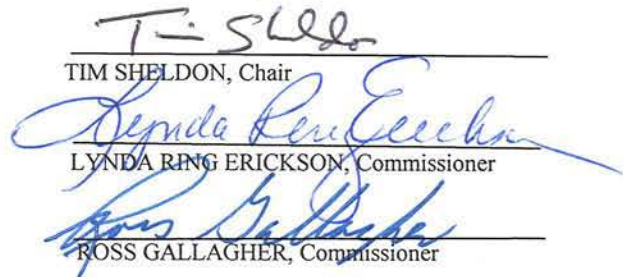 Tim Sheldon
TIM SHELDON, Chair
Lynda Ring Erickson
LYNDA RING ERICKSON, Commissioner
Ross Gallagher
ROSS GALLAGHER, Commissioner